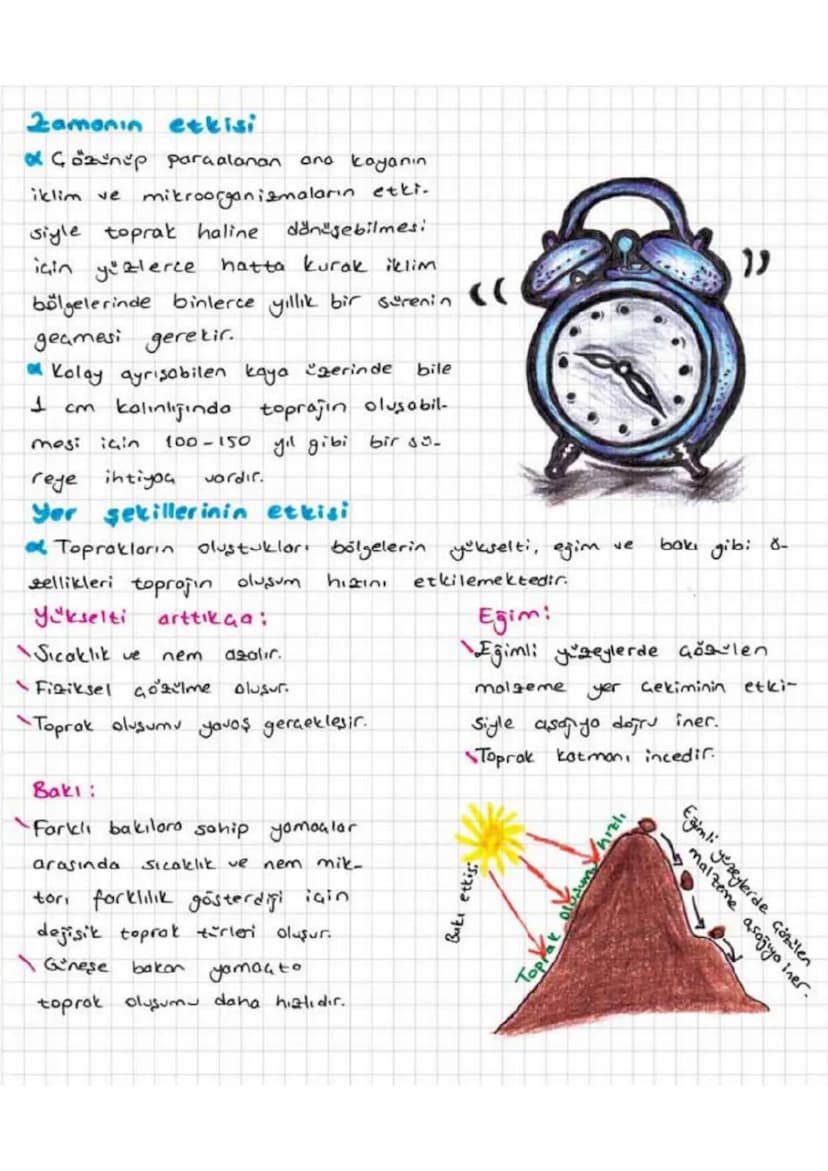 Zamanın etkisi
α Çözünüp parçalanan ana kayanın
iklim ve mikroorganizmaların etki-
siyle toprak haline dönüşebilmesi
için yüzlerce hatta kurak iklim
bölgelerinde binlerce yıllık bir sürenin
geçmesi gerekir.
α Kolay ayrışabilen kaya üzerinde bile
1 cm kalınlığında toprağın oluşabil-
mesi için 100-150 yıl gibi bir sü-
reye ihtiyaç vardır.
Yer şekillerinin etkisi
α Toprakların oluştukları bölgelerin yükselti, eğim ve bakı gibi ö-
zellikleri toprağın oluşum hızını etkilemektedir.
Yükselti arttıkça:
Sıcaklık ve nem azalır.
Fiziksel çözülme oluşur.
Toprak oluşumu yavaş gerçekleşir.
Eğim:
Eğimli yüzeylerde çözülen
malzeme yer çekiminin etki-
siyle aşağıya doğru iner.
Toprak katmanı incedir.
Bakı:
Farklı bakılara sahip yamaçlar
arasında sıcaklık ve nem mik-
tarı farklılık gösterdiği için
değişik toprak türleri oluşur.
Güneşe bakan yamaçta
toprak oluşumu daha hızlıdır.
Bakı etkisi
Toprak oluşumu hızlı
Eğimli yüzeylerde çözülen
malzeme aşağıya iner.